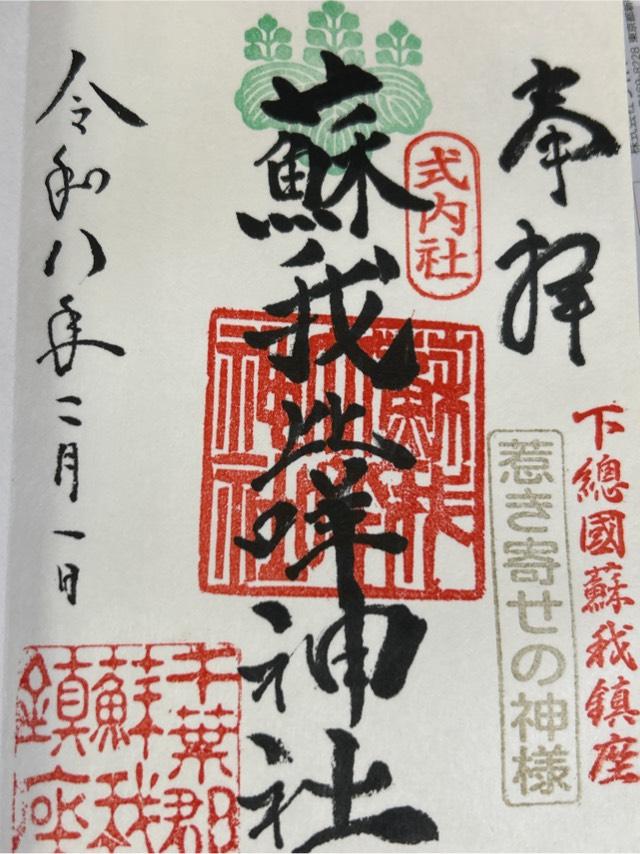 奉拝
下總國蘇我鎮座
惹き寄せの神様
式内社
蘇我比咩神社
蘇我比咩神社
令和八年二月一日
千葉郡
蘇我
鎮座